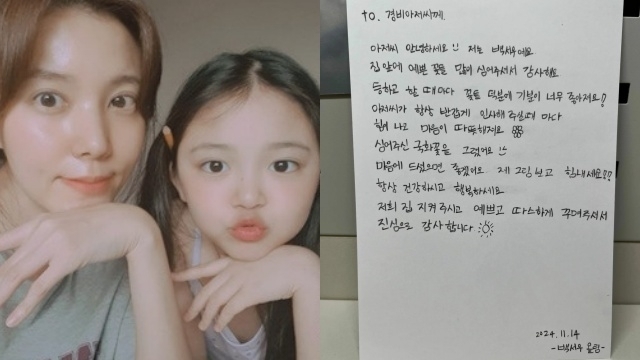 to. 경비아저씨께.
아저씨 안녕하세요 저는 백서우예요
집앞에 예쁜 꽃들 많이 심어주셔서 감사해요
등하교 할 때마다 꽃들 덕분에 기분이 너무 좋아져요?
아저씨가 항상 반갑게 인사해 주실때 마다
힘이 나고 마음이 따뜻해져요
심어주신 국화꽃을 그렸어요
마음에 드셨으면 좋겠어요 제 그림 보고 힘내세요??
항상 건강하시고 행복하세요
저희 집 지켜주시고 예쁘고 따스하게 꾸며주셔서
진심으로 감사합니다
2024.11.14
-백서우 올림-